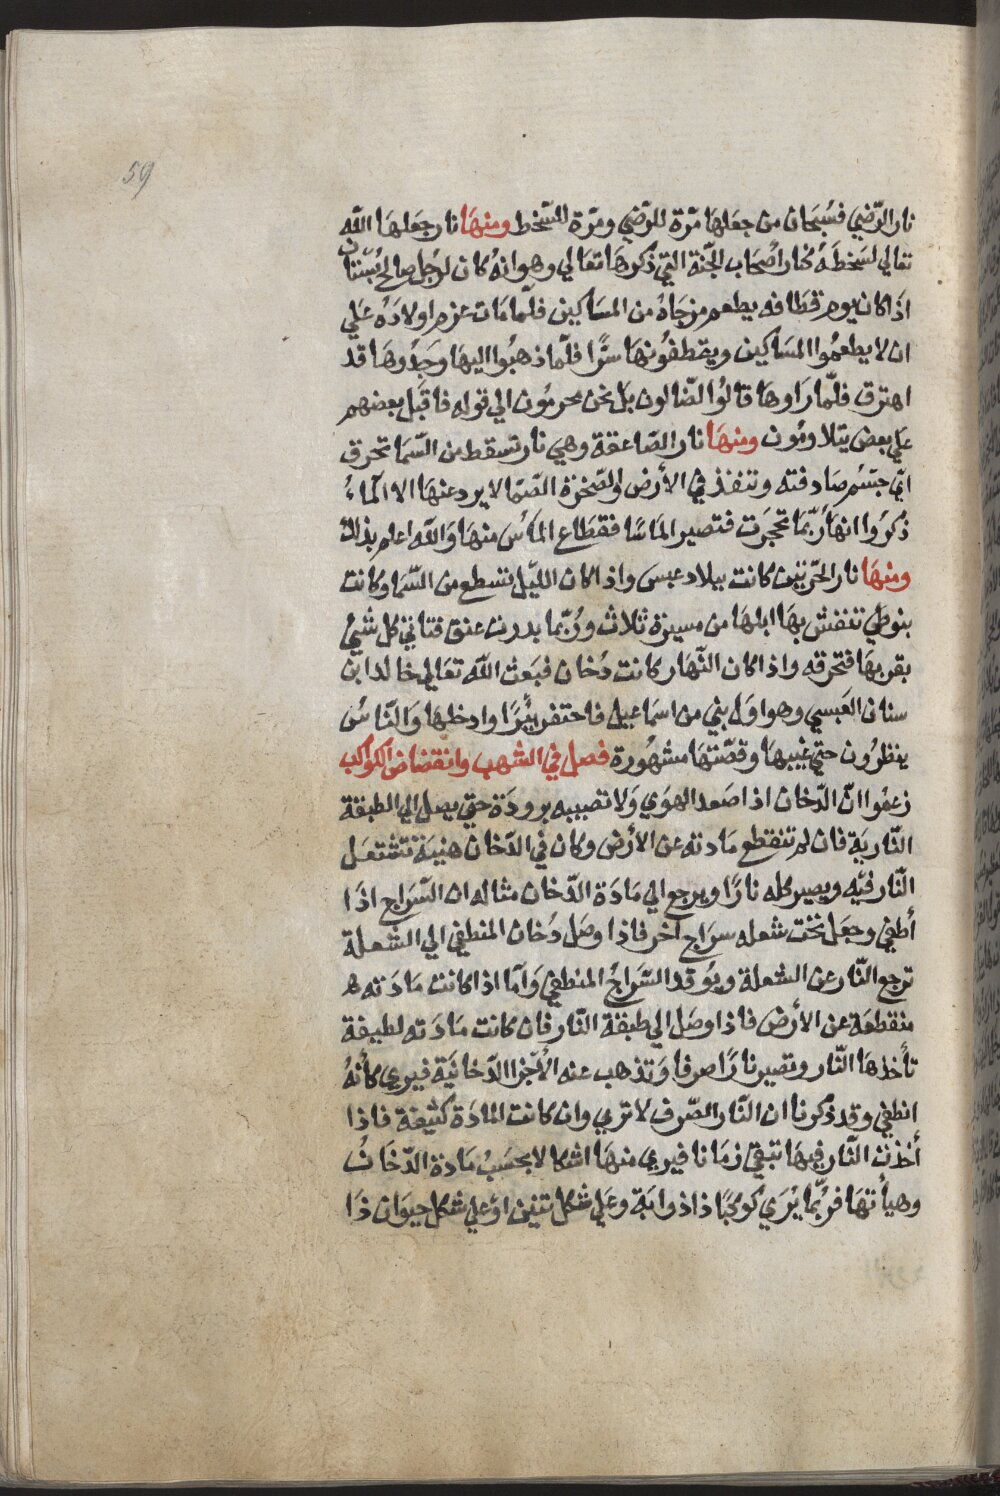 59
نار الرّضي فسُبحان من جعلها مرّة للرّضي ومرّة للسّخط ومنهَا نار جعلها اللّه
تعالي لسخطَهُ كنار أصْحَاب الجنّة التي ذكرهَا تعَالي وهو انهُ كان لرجُل صالح بُسْتان
اذَا كان يوم قطَافه يطعم من جَاهُ من المسَاكين فلمّا مَات عزم اولادَهُ عَلي
ان لا يطعمُوا المسَاكين ويقطفُونهَا سرًّا فلمّا ذهبُوا اليهَا وجَدُوهَا قد
اهترق فلمّا رَاوهَا قالوُا لضّالون بل نحن محرمُون الي قوله فاقبَل بعضهم
عَلي بعض يتلاومُون ومنهَا نار الصّاعقة وهي نار تسقط من السّما تحرق
ايّ جسْم صَادفته وتنفذ في الأرض والصّخرة الصّمّا لا يردعنهَا الا المآءُ
ذكرُوا انهَا رُبّمَا تحجرَت فتصير المَاسًا فقطَاع المَاسُ منهَا وَاللّه اعلم بذلك
ومنهَا نار الحرّتين كانت ببلاد عبس واذا كان الليّل تسطع من السّمَا وكانت
بنو طي تنفش بهَا ابلهَا من مسيرَة ثلاث ورُبّما بدرت عنق فتاتي كل شيُ
بقربهَا فتحرقه واذا كان النّهَار كانت دُخان فبَعث اللّه تعَالي خالد ابن
سنان العَبسي وهو اوّل بني من اسمَاعيل فاحتفر بئرًا وادخلهَا وَالنّاسُ
ينظرُون حتي غيبهَا وقصّتهَا مشهُورة فصل في الشهب وانقضاض الكواكب
زعمُوا انّ الدّخان اذا صَعد الهوَي وَلا تصيبه برودَة حتي يصل الي الطبقة
النّاريَة فان لم تنقطع مَادته عن الأرض وكان في الدّخان هنيَة تشتعَل
النّار فيْه ويصير كله نارًا ويرجع الي مَادَة الدّخان مثاله ان السّرَاج اذَا
أطفي وجعَل تحْت شعله سرَاج آخر فاذا وصَل دُخان المنطفي الي الشعلة
ترجع النّار عن الشعلة ويوُقد السّرَاجُ المنطفي وَأمّا اذا كانت مَادَته
منقطعَة عن الأرض فاذا وصَل الي طبقة النّار فان كانت مَادَته لطيفة
تأخذهَا النّار وتصير نارًا صرفا وَتذهب عنه الأجْزا الدّخانيَة فيري كأنهُ
انطفي وقد ذكرنا ان النّار الصّرف لا تري وان كانت المادَة كثيفة فاذا
أخذت النّار فيهَا تبقي زمَانا فيري منهَا اشكالا بحسَبُ مَادة الدّخَانُ
وهيأتهَا فرُبّمَا يُرَي كوكبًا ذا ذوابَة وعَلي شكل تنين اوْ علي شكل حيوَان ذَا